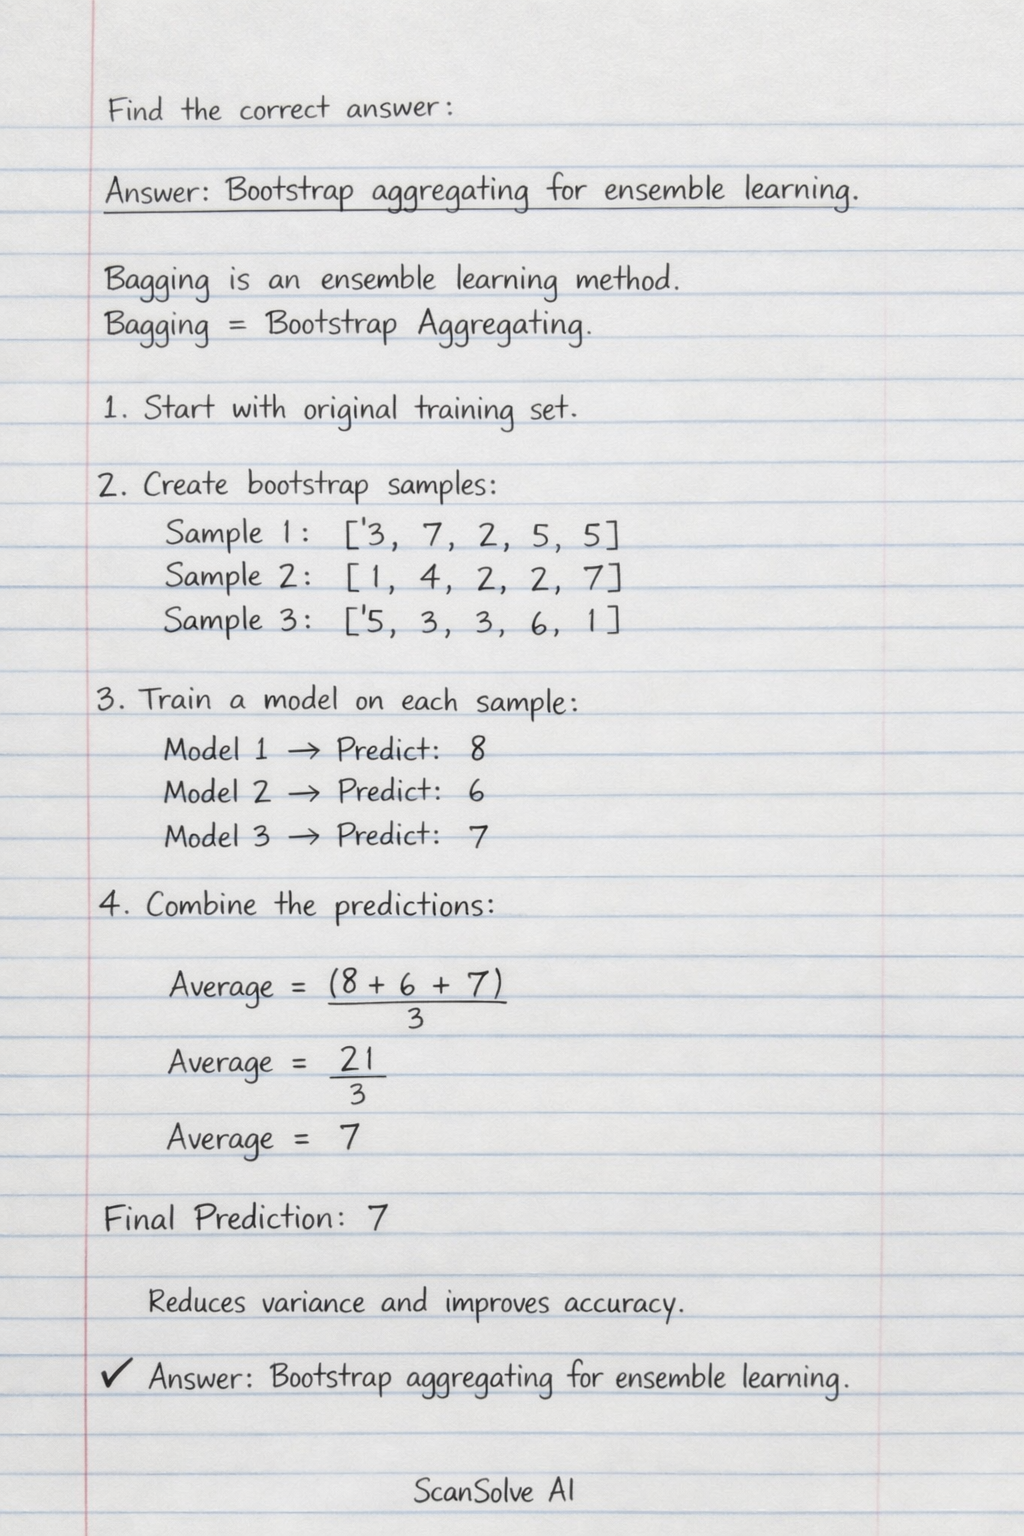 Find the correct answer:
Answer: Bootstrap aggregating for ensemble learning.
Bagging is an ensemble learning method.
Bagging = Bootstrap Aggregating.
1. Start with original training set.
2. Create bootstrap samples:
Sample 1: ['3, 7, 2, 5, 5]
Sample 2: [1, 4, 2, 2, 7]
Sample 3: ['5, 3, 3, 6, 1]
3. Train a model on each sample:
Model 1 → Predict: 8
Model 2 → Predict: 6
Model 3 → Predict: 7
4. Combine the predictions:
Average = (8 + 6 + 7)
3
Average = 21
3
Average = 7
Final Prediction: 7
Reduces variance and improves accuracy.
✓ Answer: Bootstrap aggregating for ensemble learning.
ScanSolve AI